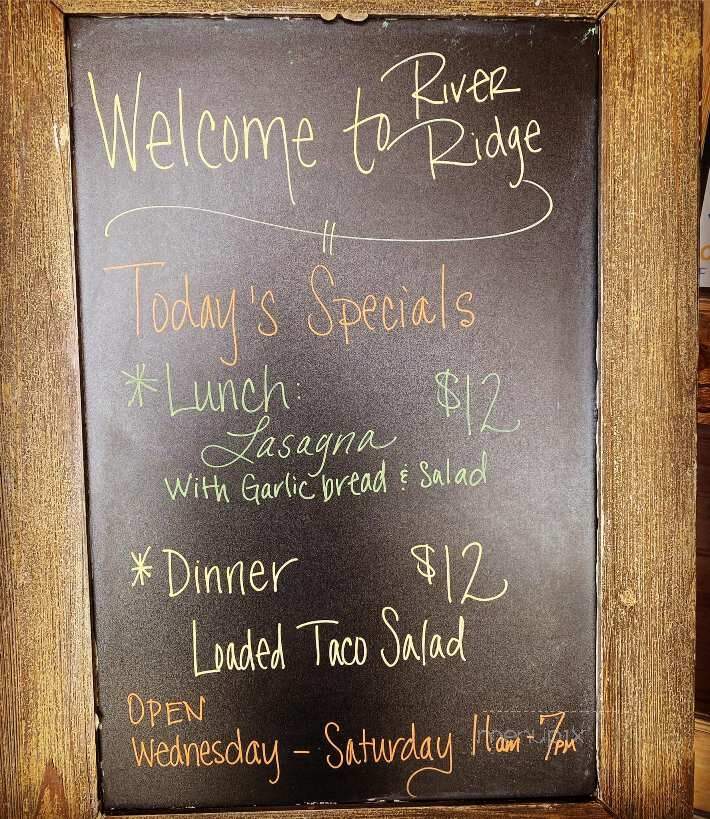 Welcome to River Ridge
Today's Specials
* Lunch: $12
Lasagna
With Garlic bread & Salad
* Dinner $12
Loaded Taco Salad
OPEN
Wednesday - Saturday 11am - 7pm
menupix